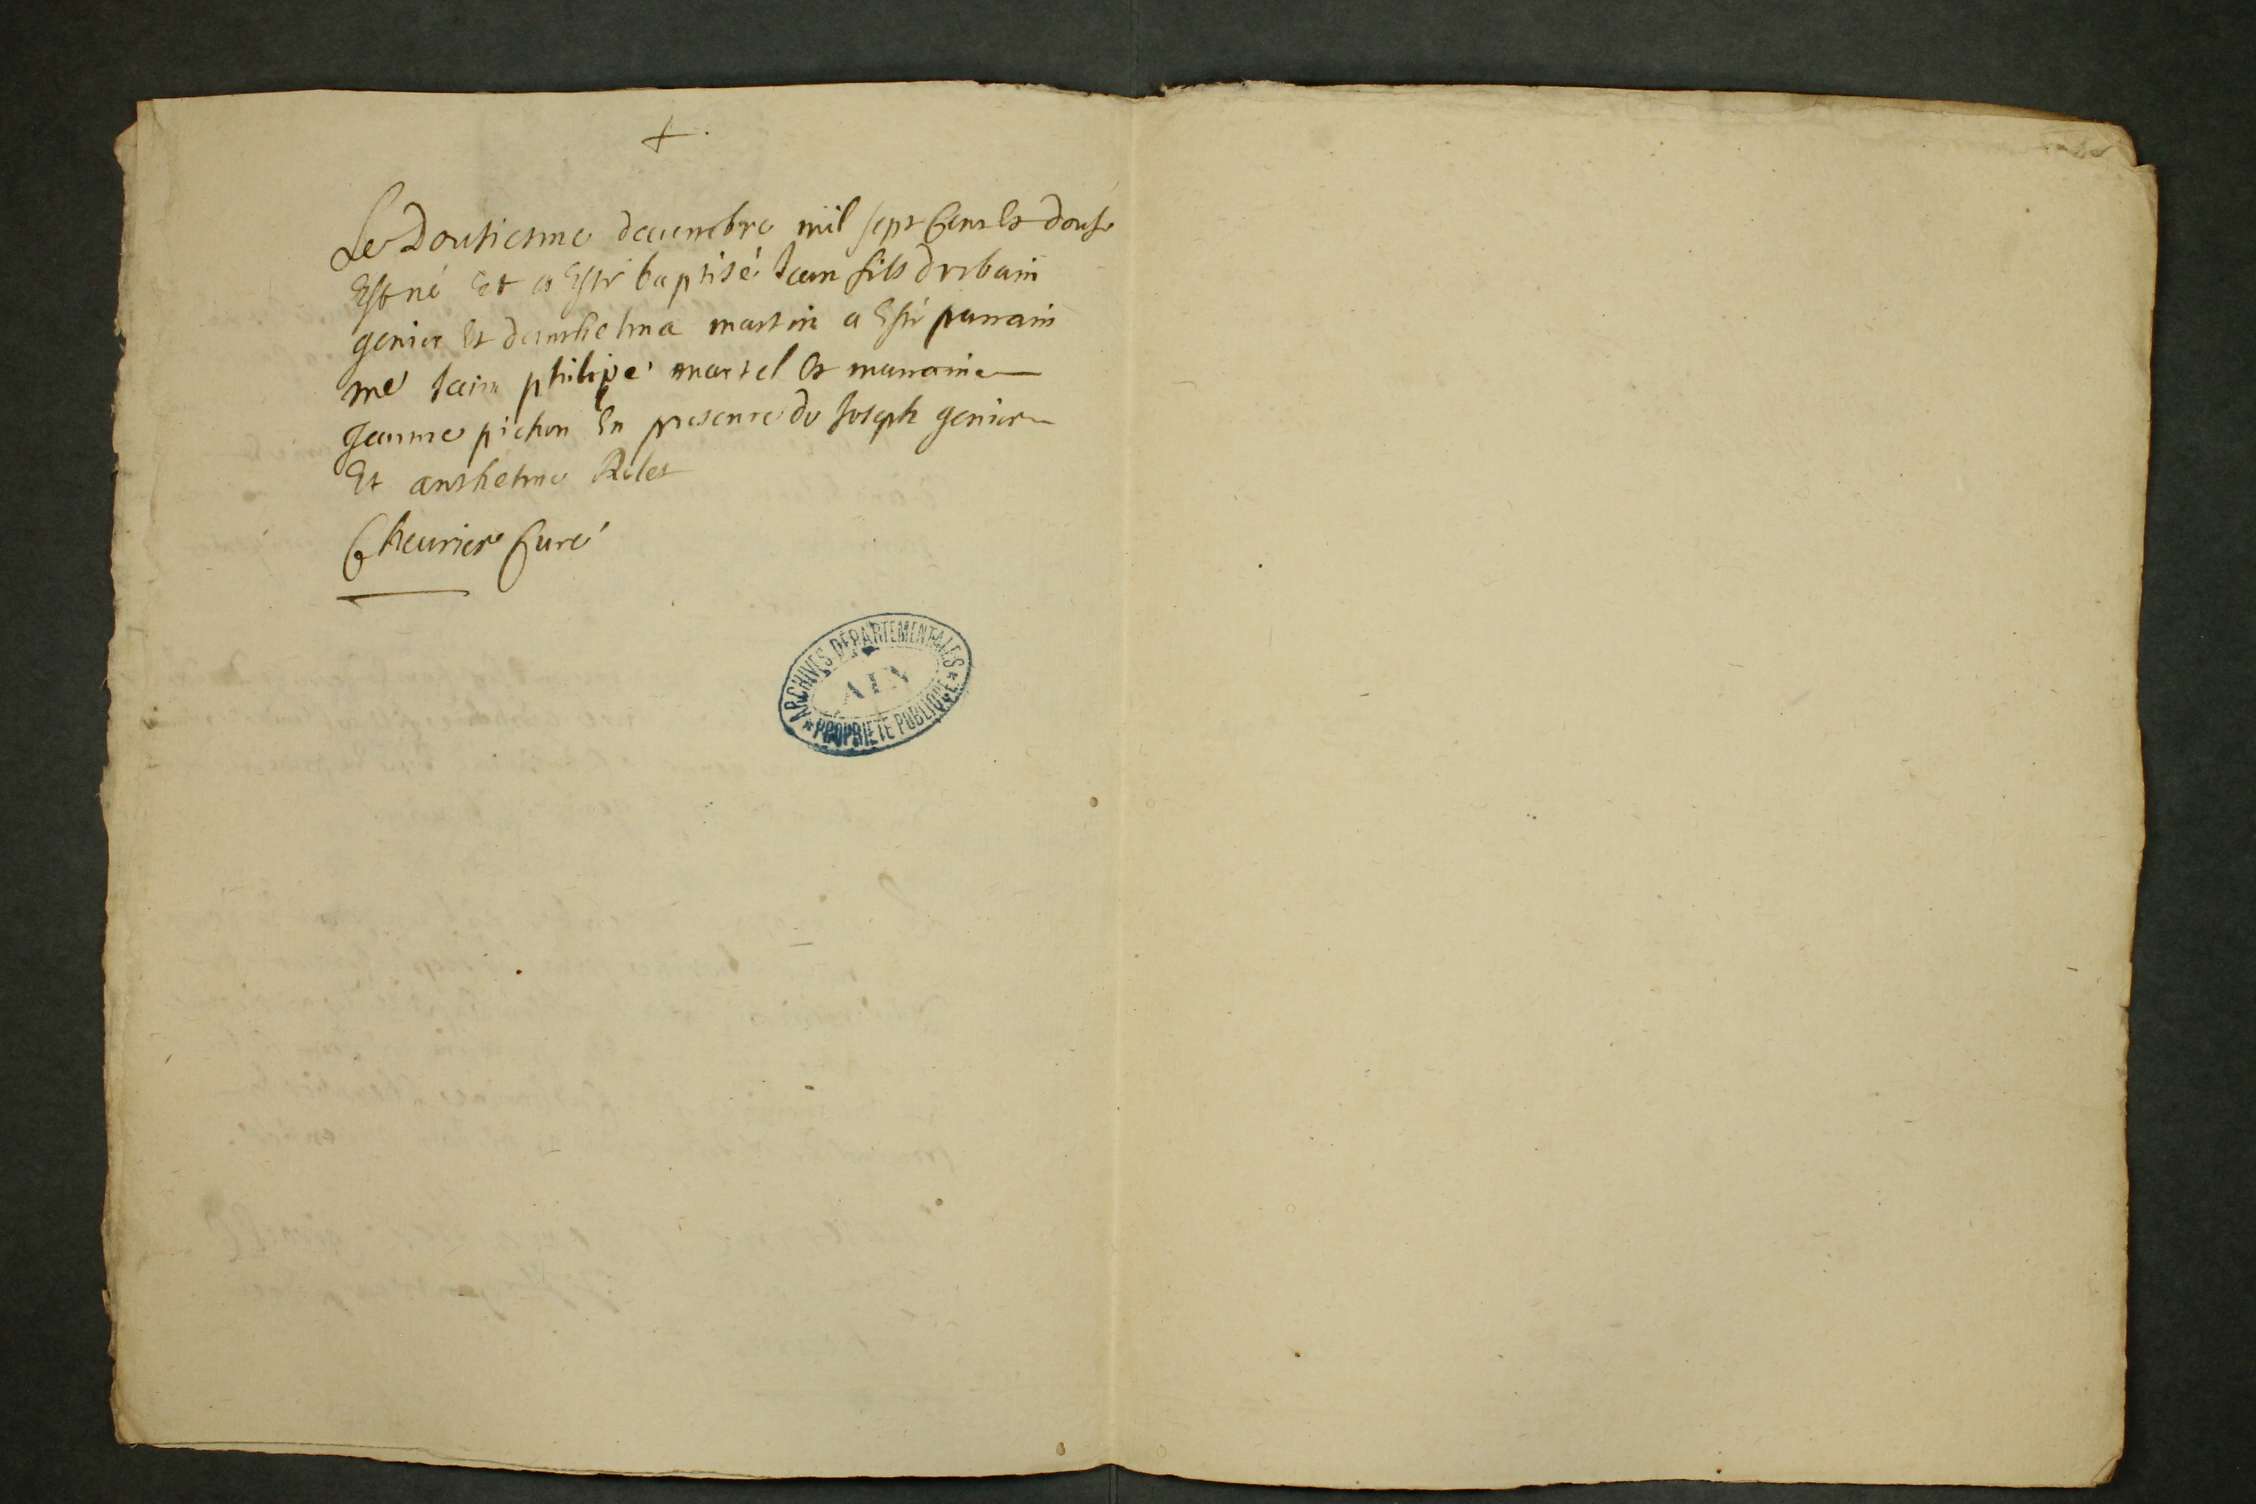 +
Le Dousiesme decembre mil sept Cent Et douse
Est né Et a Esté baptisé Jean fils d'vrbain
genier Et d'anthelma martin a Esté parrain
me Jean philipe martel Et marraine
Jeanne pichon En presence de Joseph genier
Et anthelme Rilet
Cheurier Curé
ARCHIVES DÉPARTEMENTALES
AIN
* PROPRIÉTÉ PUBLIQUE *